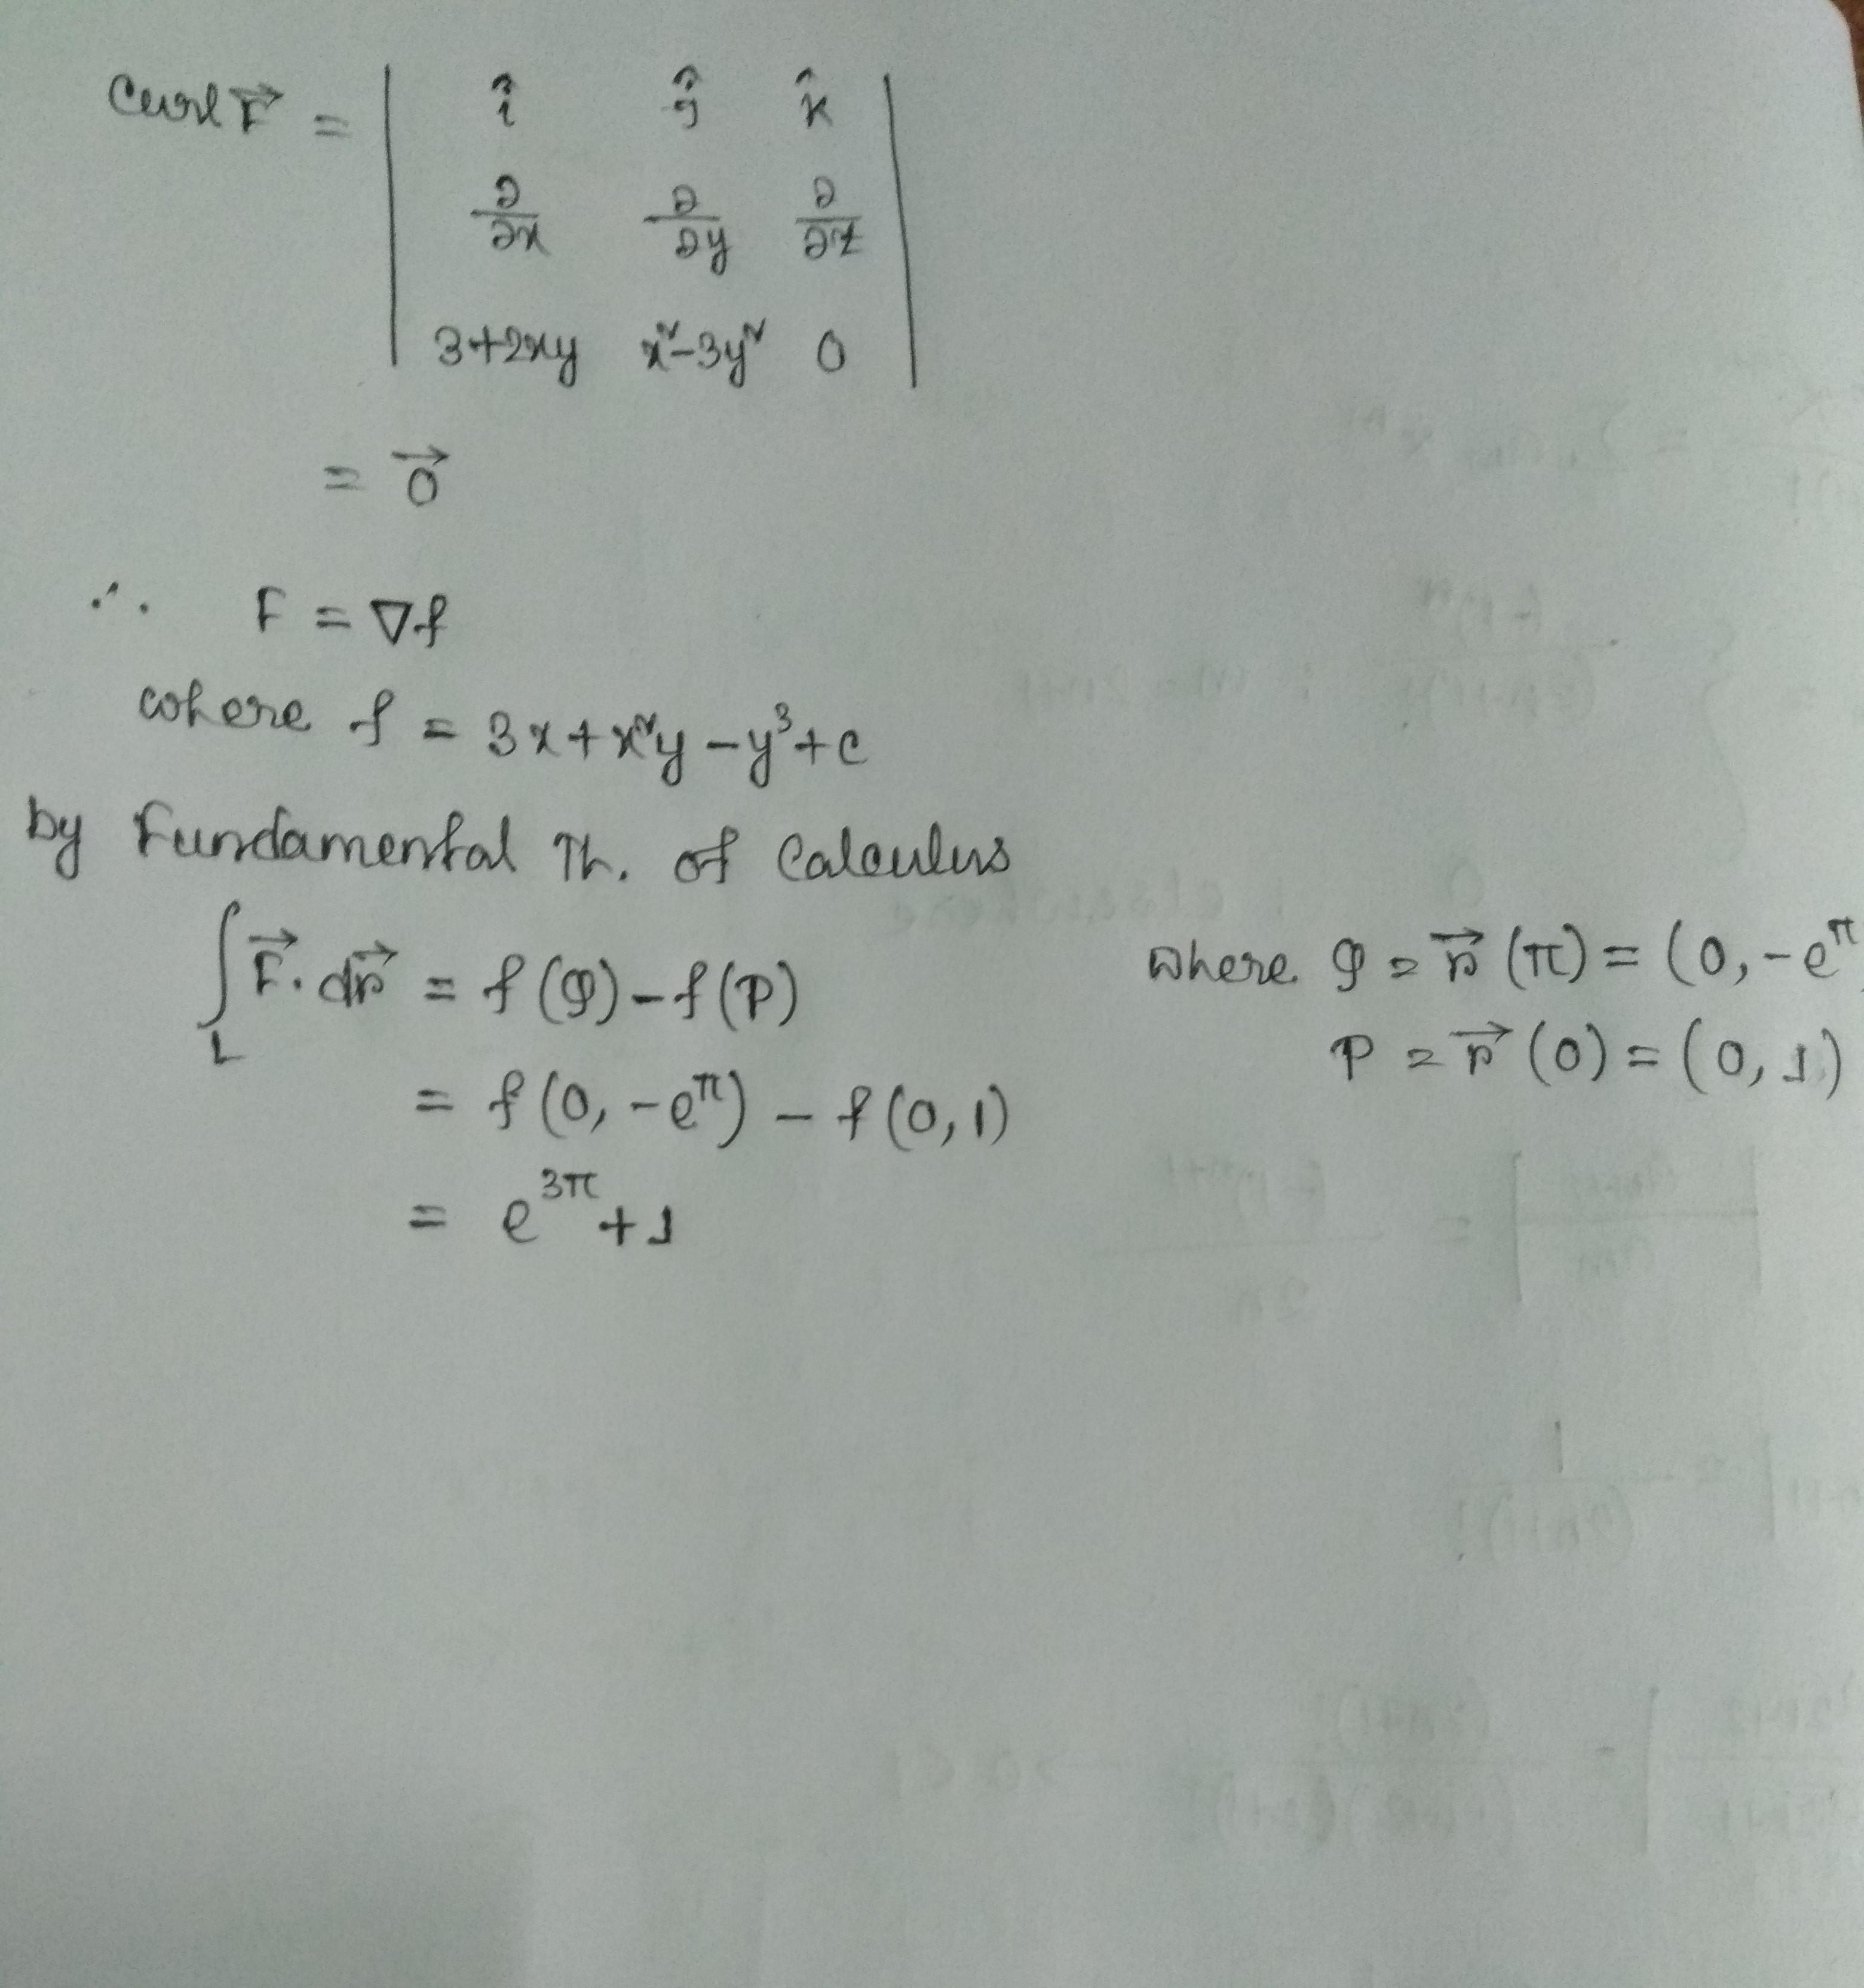 Curl F⃗ = | î ĵ k̂ |
| ∂/∂x ∂/∂y ∂/∂z |
| 3+2xy x²-3y² 0 |
= 0⃗
∴ F = ∇f
where f = 3x + x²y - y³ + c
by Fundamental Th. of Calculus
∫_L F⃗. dr⃗ = f(Q) - f(P) where Q = r⃗(π) = (0, -e^π
= f(0, -e^π) - f(0, 1) P = r⃗(0) = (0, 1)
= e^{3π} + 1